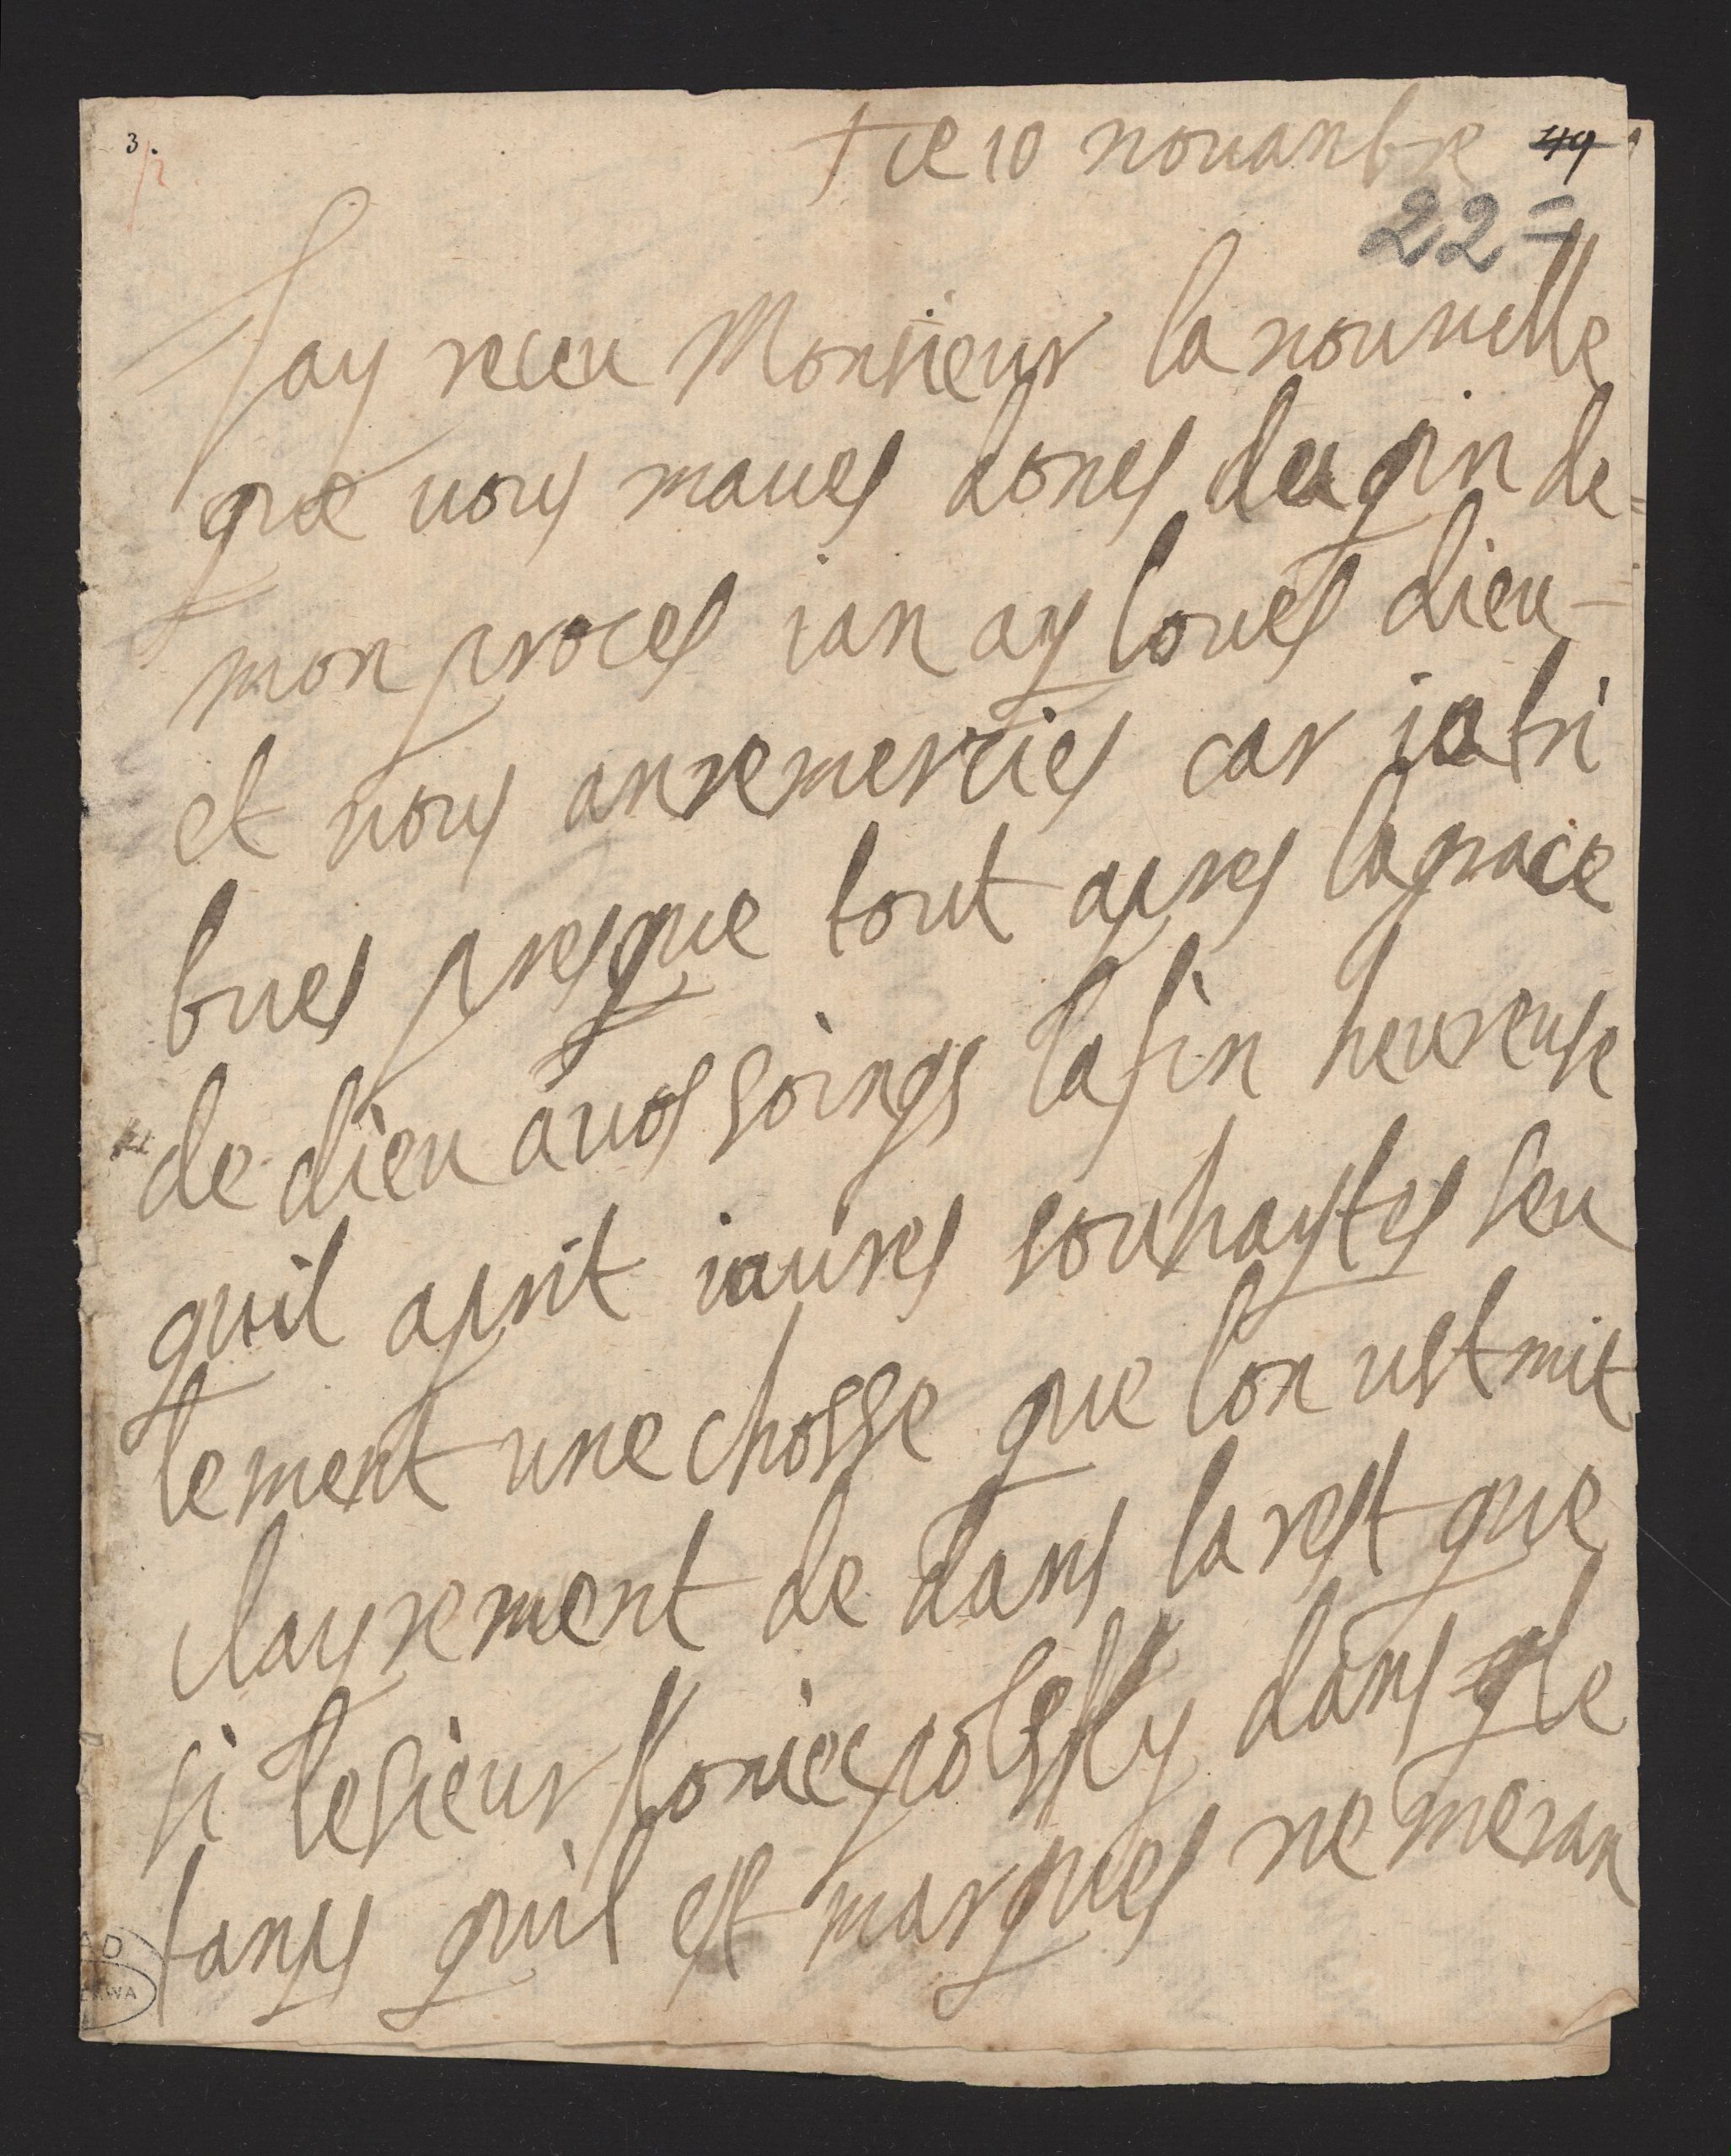 3.
† ce 10 nouanbre 49
22=
Jay receu Monsieur la nouuelle
que uous maues dones de fin de=
mon proces ian ay loues dieu-
et uous anremercies car iatri
bues presque tout apres la grace
de dieu auos soings la fin heureuse
quil aprit iaures souhaytes seu
lement une chosse que lon ust mit
clayrement de dans larest que
si lesieur Koniecpolssky dans le
tanps quil est marques ne meran